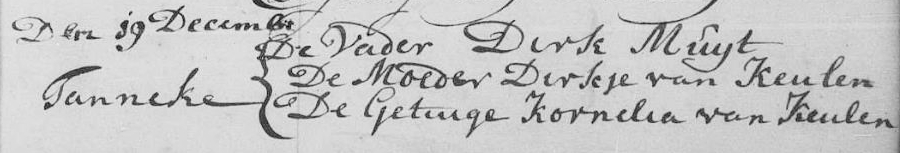 Den 19 December
De Vader Dirk Muyt
De Moeder Dirkje van Keulen
Janneke
De Getuige Kornelia van Keulen